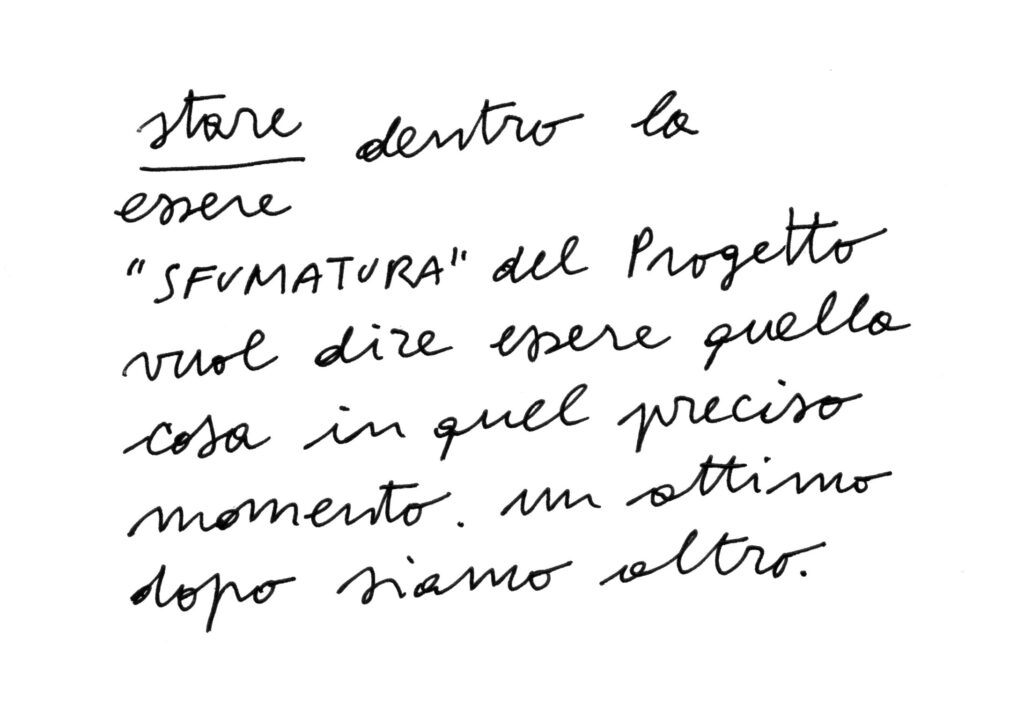 stare dentro la
essere
"SFUMATURA" del Progetto
vuol dire essere quella
cosa in quel preciso
momento. un attimo
dopo siamo altro.